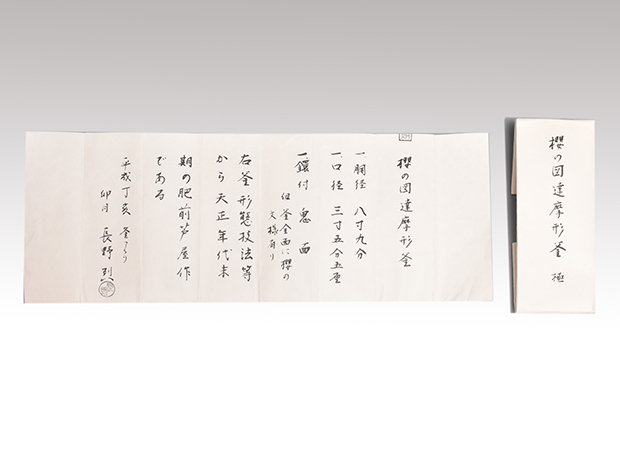 櫻の図達摩形釜
一胴径 八寸九分
一口径 三寸五分五厘
一鐶付 鬼面
但釜全面に櫻の
文様有り
右釜形態技法等
から天正年代末
期の肥前芦屋作
である
平成丁亥 釜つくり
卯月 長野
櫻の図達摩形釜 極